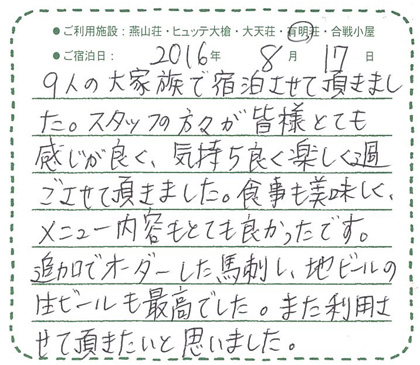 ●ご利用施設：燕山荘・ヒュッテ大槍・大天荘・有明荘・合戦小屋
●ご宿泊日： 2016年 8月 17日
9人の大家族で宿泊させて頂きまし
た。スタッフの方々が皆様とても
感じが良く、気持ち良く楽しく過
ごさせて頂きました。食事も美味しく、
メニュー内容もとても良かったです。
追加でオーダーした馬刺し、地ビールの
生ビールも最高でした。また利用さ
せて頂きたいと思いました。